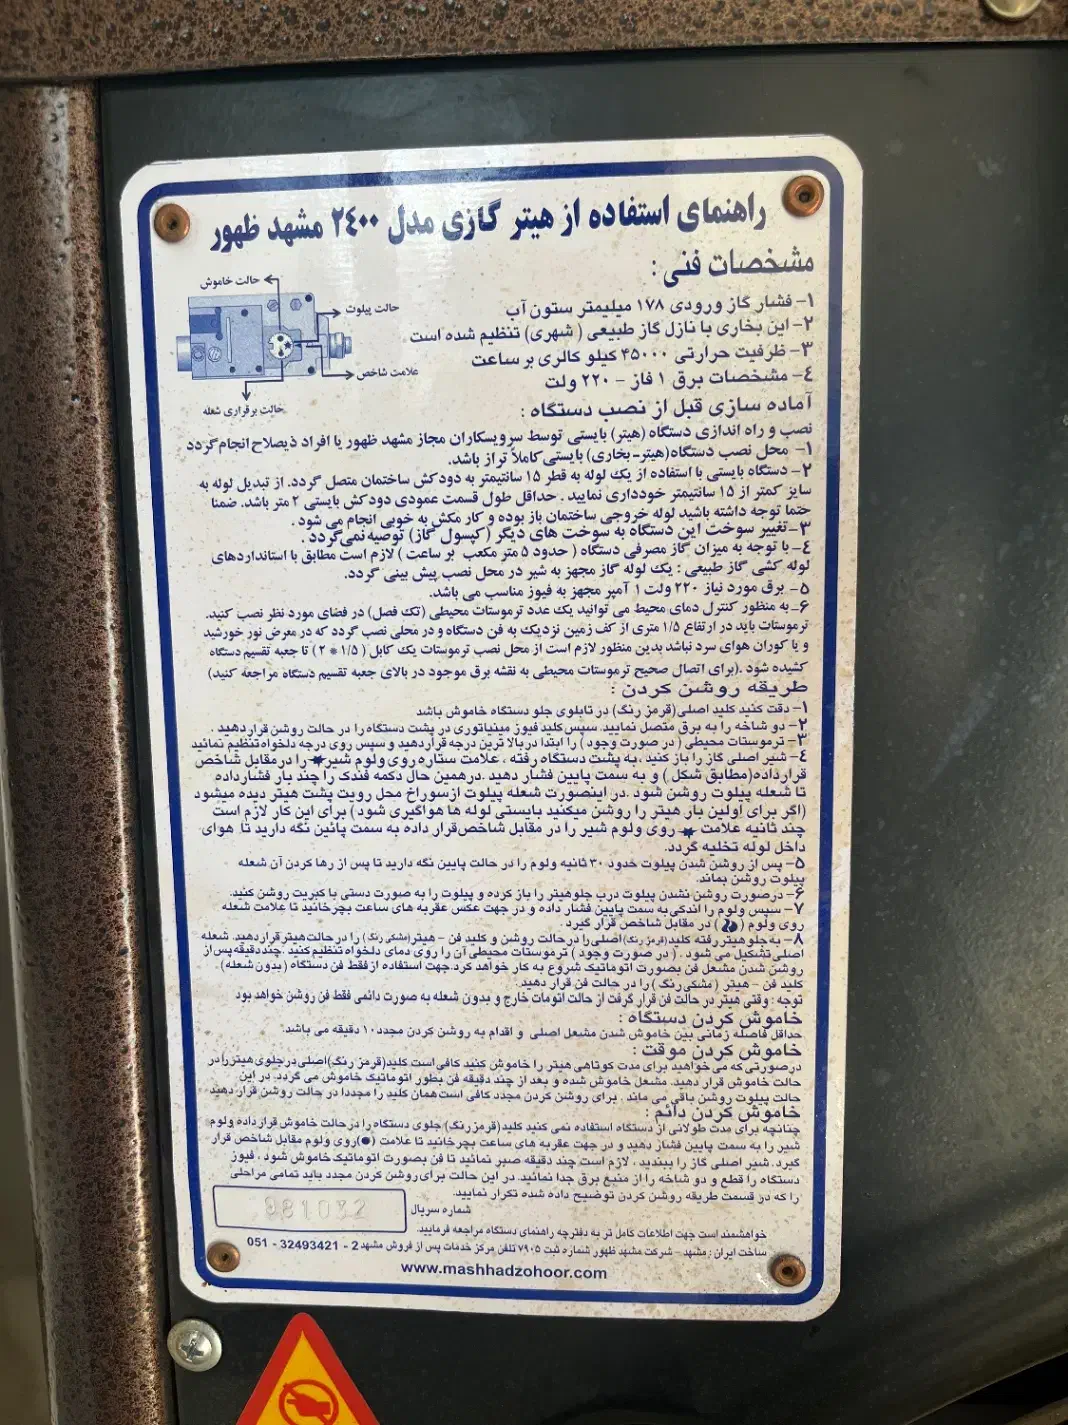 راهنمای استفاده از هیتر گازی مدل ۲۴۰۰ مشهد ظهور
مشخصات فنی :
حالت خاموش
حالت پیلوت
علامت شاخص
حالت برقراری شعله
۱- فشار گاز ورودی ۱۷۸ میلیمتر ستون آب
۲- این بخاری با نازل گاز طبیعی ( شهری) تنظیم شده است
۳- ظرفیت حرارتی ۴۵۰۰۰ کیلو کالری بر ساعت
۴- مشخصات برق ۱ فاز - ۲۲۰ ولت
آماده سازی قبل از نصب دستگاه :
نصب و راه اندازی دستگاه (هیتر) بایستی توسط سرویسکاران مجاز مشهد ظهور یا افراد ذیصلاح انجام گردد
۱- محل نصب دستگاه(هیتر-بخاری) بایستی کاملاً تراز باشد.
۲- دستگاه بایستی با استفاده از یک لوله به قطر ۱۵ سانتیمتر به دودکش ساختمان متصل گردد. از تبدیل لوله به
سایز کمتر از ۱۵ سانتیمتر خودداری نمایید . حداقل طول قسمت عمودی دودکش بایستی ۲ متر باشد. ضمنا
حتما توجه داشته باشید لوله خروجی ساختمان باز بوده و کار مکش به خوبی انجام می شود .
۳-تغییر سوخت این دستگاه به سوخت های دیگر (کپسول گاز) توصیه نمی‌گردد .
۴- با توجه به میزان گاز مصرفی دستگاه ( حدود ۵ متر مکعب بر ساعت ) لازم است مطابق با استانداردهای
لوله کشی گاز طبیعی : یک لوله گاز مجهز به شیر در محل نصب پیش بینی گردد.
۵- برق مورد نیاز ۲۲۰ ولت ۱ آمپر مجهز به فیوز مناسب می باشد.
۶-به منظور کنترل دمای محیط می توانید یک عدد ترموستات محیطی (تک فصل) در فضای مورد نظر نصب کنید.
ترموستات باید در ارتفاع ۱/۵ متری از کف زمین نزدیک به فن دستگاه و در محلی نصب گردد که در معرض نور خورشید
و یا کوران هوای سرد نباشد بدین منظور لازم است از محل نصب ترموستات یک کابل ( ۱/۵ * ۲ ) تا جعبه تقسیم دستگاه
کشیده شود .(برای اتصال صحیح ترموستات محیطی به نقشه برق موجود در بالای جعبه تقسیم دستگاه مراجعه کنید)
طریقه روشن کردن :
۱- دقت کنید کلید اصلی(قرمز رنگ) در تابلوی جلو دستگاه خاموش باشد
۲- دو شاخه را به برق متصل نمایید. سپس کلید فیوز مینیاتوری در پشت دستگاه را در حالت روشن قرار دهید .
۳- ترموستات محیطی ( در صورت وجود ) را ابتدا در بالا ترین درجه قرار دهید و سپس روی درجه دلخواه تنظیم نمائید
۴- شیر اصلی گاز را باز کنید ،به پشت دستگاه رفته ، علامت ستاره روی ولوم شیر را در مقابل شاخص
قرار داده(مطابق شکل ) و به سمت پایین فشار دهید .در همین حال دکمه فندک را چند بار فشار داده
تا شعله پیلوت روشن شود .در اینصورت شعله پیلوت از سوراخ محل رویت پشت هیتر دیده میشود
(اگر برای اولین بار هیتر را روشن میکنید بایستی لوله ها هواگیری شود ) برای این کار لازم است
چند ثانیه علامت روی ولوم شیر را در مقابل شاخص قرار داده به سمت پائین نگه دارید تا هوای
داخل لوله تخلیه گردد.
۵- پس از روشن شدن پیلوت حدود ۳۰ ثانیه ولوم را در حالت پایین نگه دارید تا پس از رها کردن آن شعله
پیلوت روشن بماند.
۶- در صورت روشن نشدن پیلوت درب جلو هیتر را باز کرده و پیلوت را به صورت دستی با کبریت روشن کنید.
۷- سپس ولوم را اندکی به سمت پایین فشار داده و در جهت عکس عقربه های ساعت بچرخانید تا علامت شعله
روی ولوم ( ) در مقابل شاخص قرار گیرد .
۸- به جلو هیتر رفته کلید(قرمز رنگ) اصلی را در حالت روشن و کلید فن - هیتر(مشکی رنگ ) را در حالت هیتر قرار دهید. شعله
اصلی تشکیل می شود . ( در صورت وجود ) ترموستات محیطی آن را روی دمای دلخواه تنظیم کنید .چند دقیقه پس از
روشن شدن مشعل فن بصورت اتوماتیک شروع به کار خواهد کرد.جهت استفاده از فقط فن دستگاه ( بدون شعله)
کلید فن - هیتر ( مشکی رنگ ) را در حالت فن قرار دهید.
توجه : وقتی هیتر در حالت فن قرار گرفت از حالت اتومات خارج و بدون شعله به صورت دائمی فقط فن روشن خواهد بود
خاموش کردن دستگاه :
حداقل فاصله زمانی بین خاموش شدن مشعل اصلی و اقدام به روشن کردن مجدد ۱۰ دقیقه می باشد.
خاموش کردن موقت :
در صورتی که می خواهید برای مدت کوتاهی هیتر را خاموش کنید کافی است کلید(قرمز رنگ)اصلی در جلوی هیتر را در
حالت خاموش قرار دهید. مشعل خاموش شده و بعد از چند دقیقه فن بطور اتوماتیک خاموش می گردد. در این
حالت پیلوت روشن باقی می ماند . برای روشن کردن مجدد کافی است همان کلید را مجددا در حالت روشن قرار دهید
خاموش کردن دائم :
چنانچه برای مدت طولانی از دستگاه استفاده نمی کنید کلید(قرمزرنگ) جلوی دستگاه را در حالت خاموش قرار داده ولوم
شیر را به سمت پایین فشار دهید و در جهت عقربه های ساعت بچرخانید تا علامت (●)روی ولوم مقابل شاخص قرار
گیرد. شیر اصلی گاز را ببندید ، لازم است چند دقیقه صبر نمائید تا فن بصورت اتوماتیک خاموش شود ، فیوز
دستگاه را قطع و دو شاخه را از منبع برق جدا نمائید. در این حالت برای روشن کردن مجدد باید تمامی مراحلی
را که در قسمت طریقه روشن کردن توضیح داده شده تکرار نمایید.
شماره سریال 981032
خواهشمند است جهت اطلاعات کامل تر به دفترچه راهنمای دستگاه مراجعه فرمایید.
ساخت ایران : مشهد - شرکت مشهد ظهور شماره ثبت ۷۹۰۵ تلفن مرکز خدمات پس از فروش مشهد 2 - 32493421 - 051
www.mashhadzohoor.com